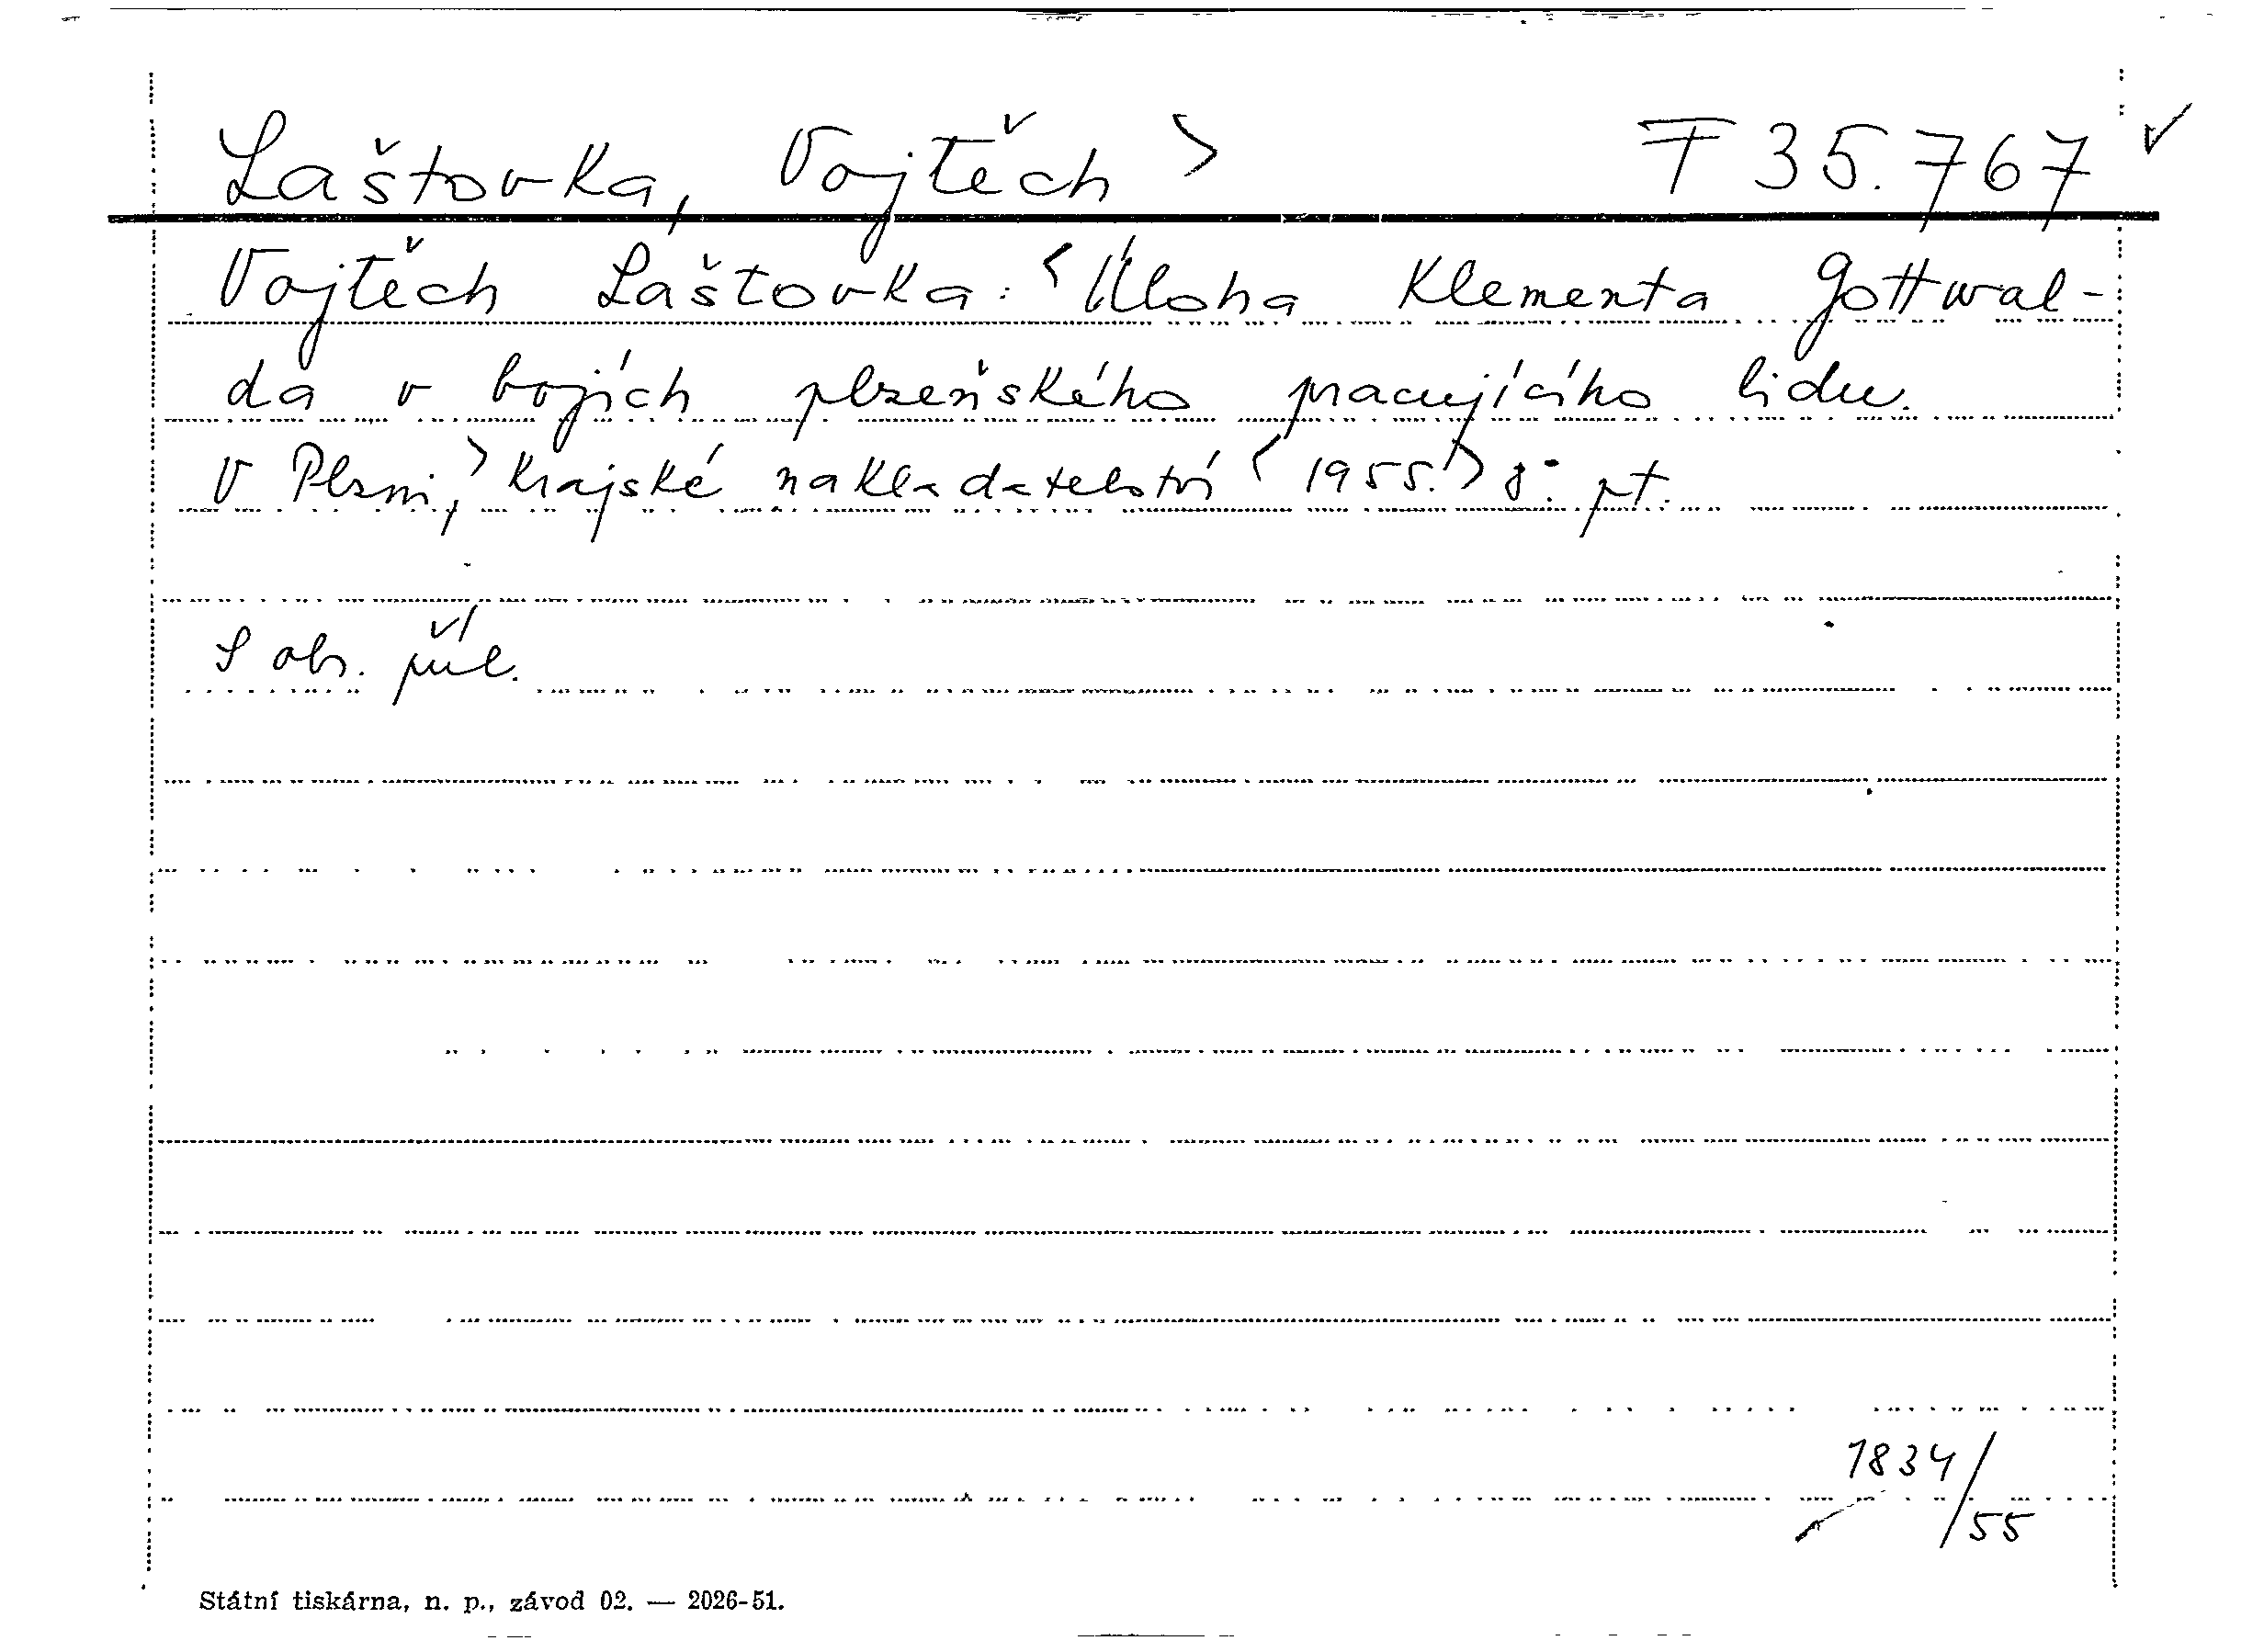 Laštovka, Vojtěch > F 35.767 ✓
Vojtěch Laštovka: <Úloha Klementa Gottwal-
da v bojích plzeňského pracujícího lidu.
V Plzni,> Krajské nakladatelství <1955.> 8° pt.
S obr. příl.
1834/55
Státní tiskárna, n. p., závod 02. — 2026-51.